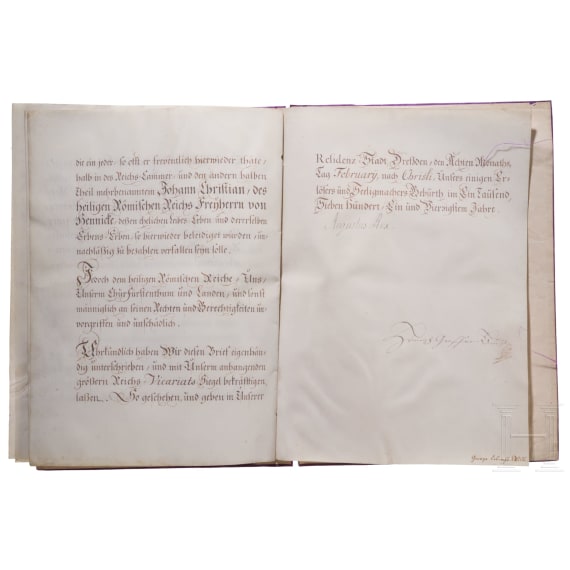 die ein jeder, so offt er freventlich hierwieder thäte,
halb in des Reichs-Cammer, und den andern halben
Theil mehrbenanntem Johann Christian, des
heiligen Römischen Reichs Freyherrn von
Hennicke, deßen ehelichen Leibes-Erben, und dererselben
Erbens-Erben, so hierwieder beleidiget würden, un-
nachläßig zu bezahlen verfallen seyn solle.
Jedoch dem heiligen Römischen Reiche, Uns,
Unserm Chur Fürstenthum und Landen, und sonst
männiglich an seinen Rechten und Gerechtigkeiten un-
vorgriffen und unschädlich.
Uhrkundlich haben Wir diesen Brief eigenhän-
dig unterschrieben, und mit Unserm anhangenden
größern Reichs-Vicariats Siegel bekräfftigen
laßen. So geschehen, und geben in Unserer
Residenz Stadt Dresden, den Achten Monaths
Tag February, nach Christi, Unsers einigen Er-
lösers und Seeligmachers Gebürth im Ein Tausend,
Sieben hundert, Ein und Vierzigsten Jahre.
Augustus Rex.